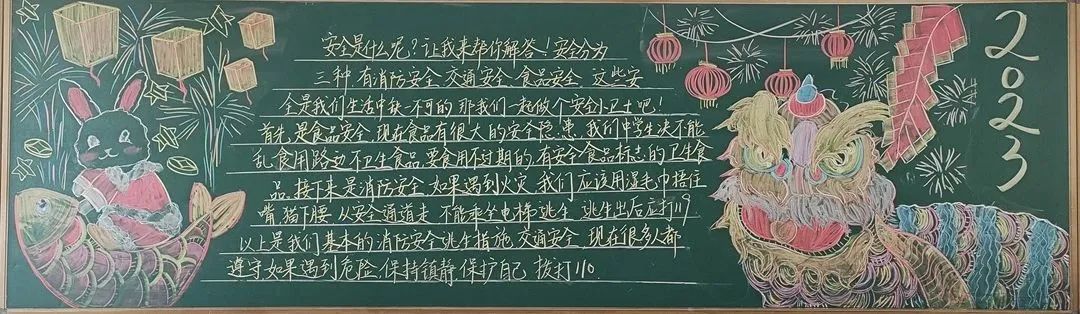 安全是什么呢？让我来帮你解答！安全分为
三种，有消防安全 交通安全 食品安全 这些安
全是我们生活中缺一不可的 那我们一起做个安全小卫士吧！
首先是食品安全，现在食品有很大的安全隐患，我们中学生决不能
乱食用路边不卫生食品，要食用不过期的，有安全食品标志的卫生食
品。接下来是消防安全，如果遇到火灾，我们应该用湿毛巾捂住
嘴，猫下腰，从安全通道走，不能乘坐电梯逃生，逃生出后应打119
以上是我们基本的消防安全逃生措施，交通安全，现在很多人都
遵守，如果遇到危险，保持镇静，保护自己，拨打110
2023